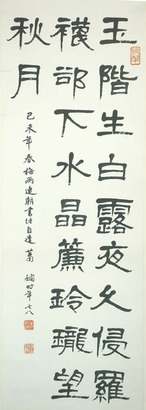 玉階生白露夜久侵羅
襪卻下水晶簾玲瓏望
秋月
己未年春梅雨連朝書此自遣 蕭嫻時年七八